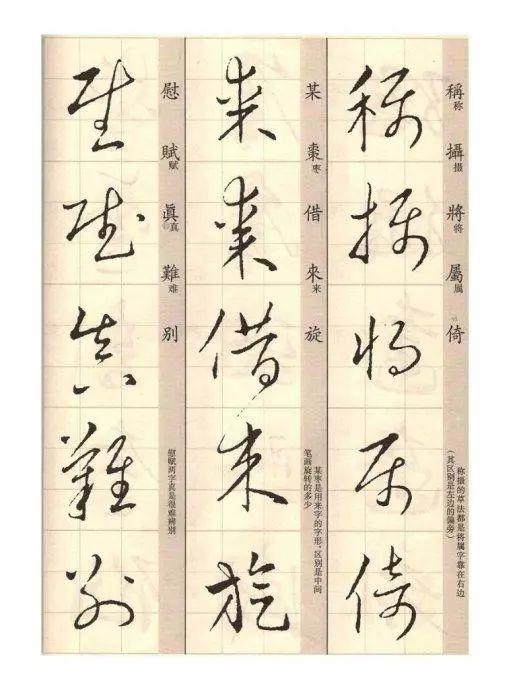 稱称 攝摄 將将 屬属 倚
称摄的草法都是将属字靠在右边
(其区别是左边的偏旁)
稱攝將屬倚
某 棗枣 借 來来 旋
某枣是用来字的字形,区别是中间
笔画旋转的多少
某棗借來旋
慰 賦赋 眞真 難难 别
慰赋两字真是很难辨别
慰賦眞難别